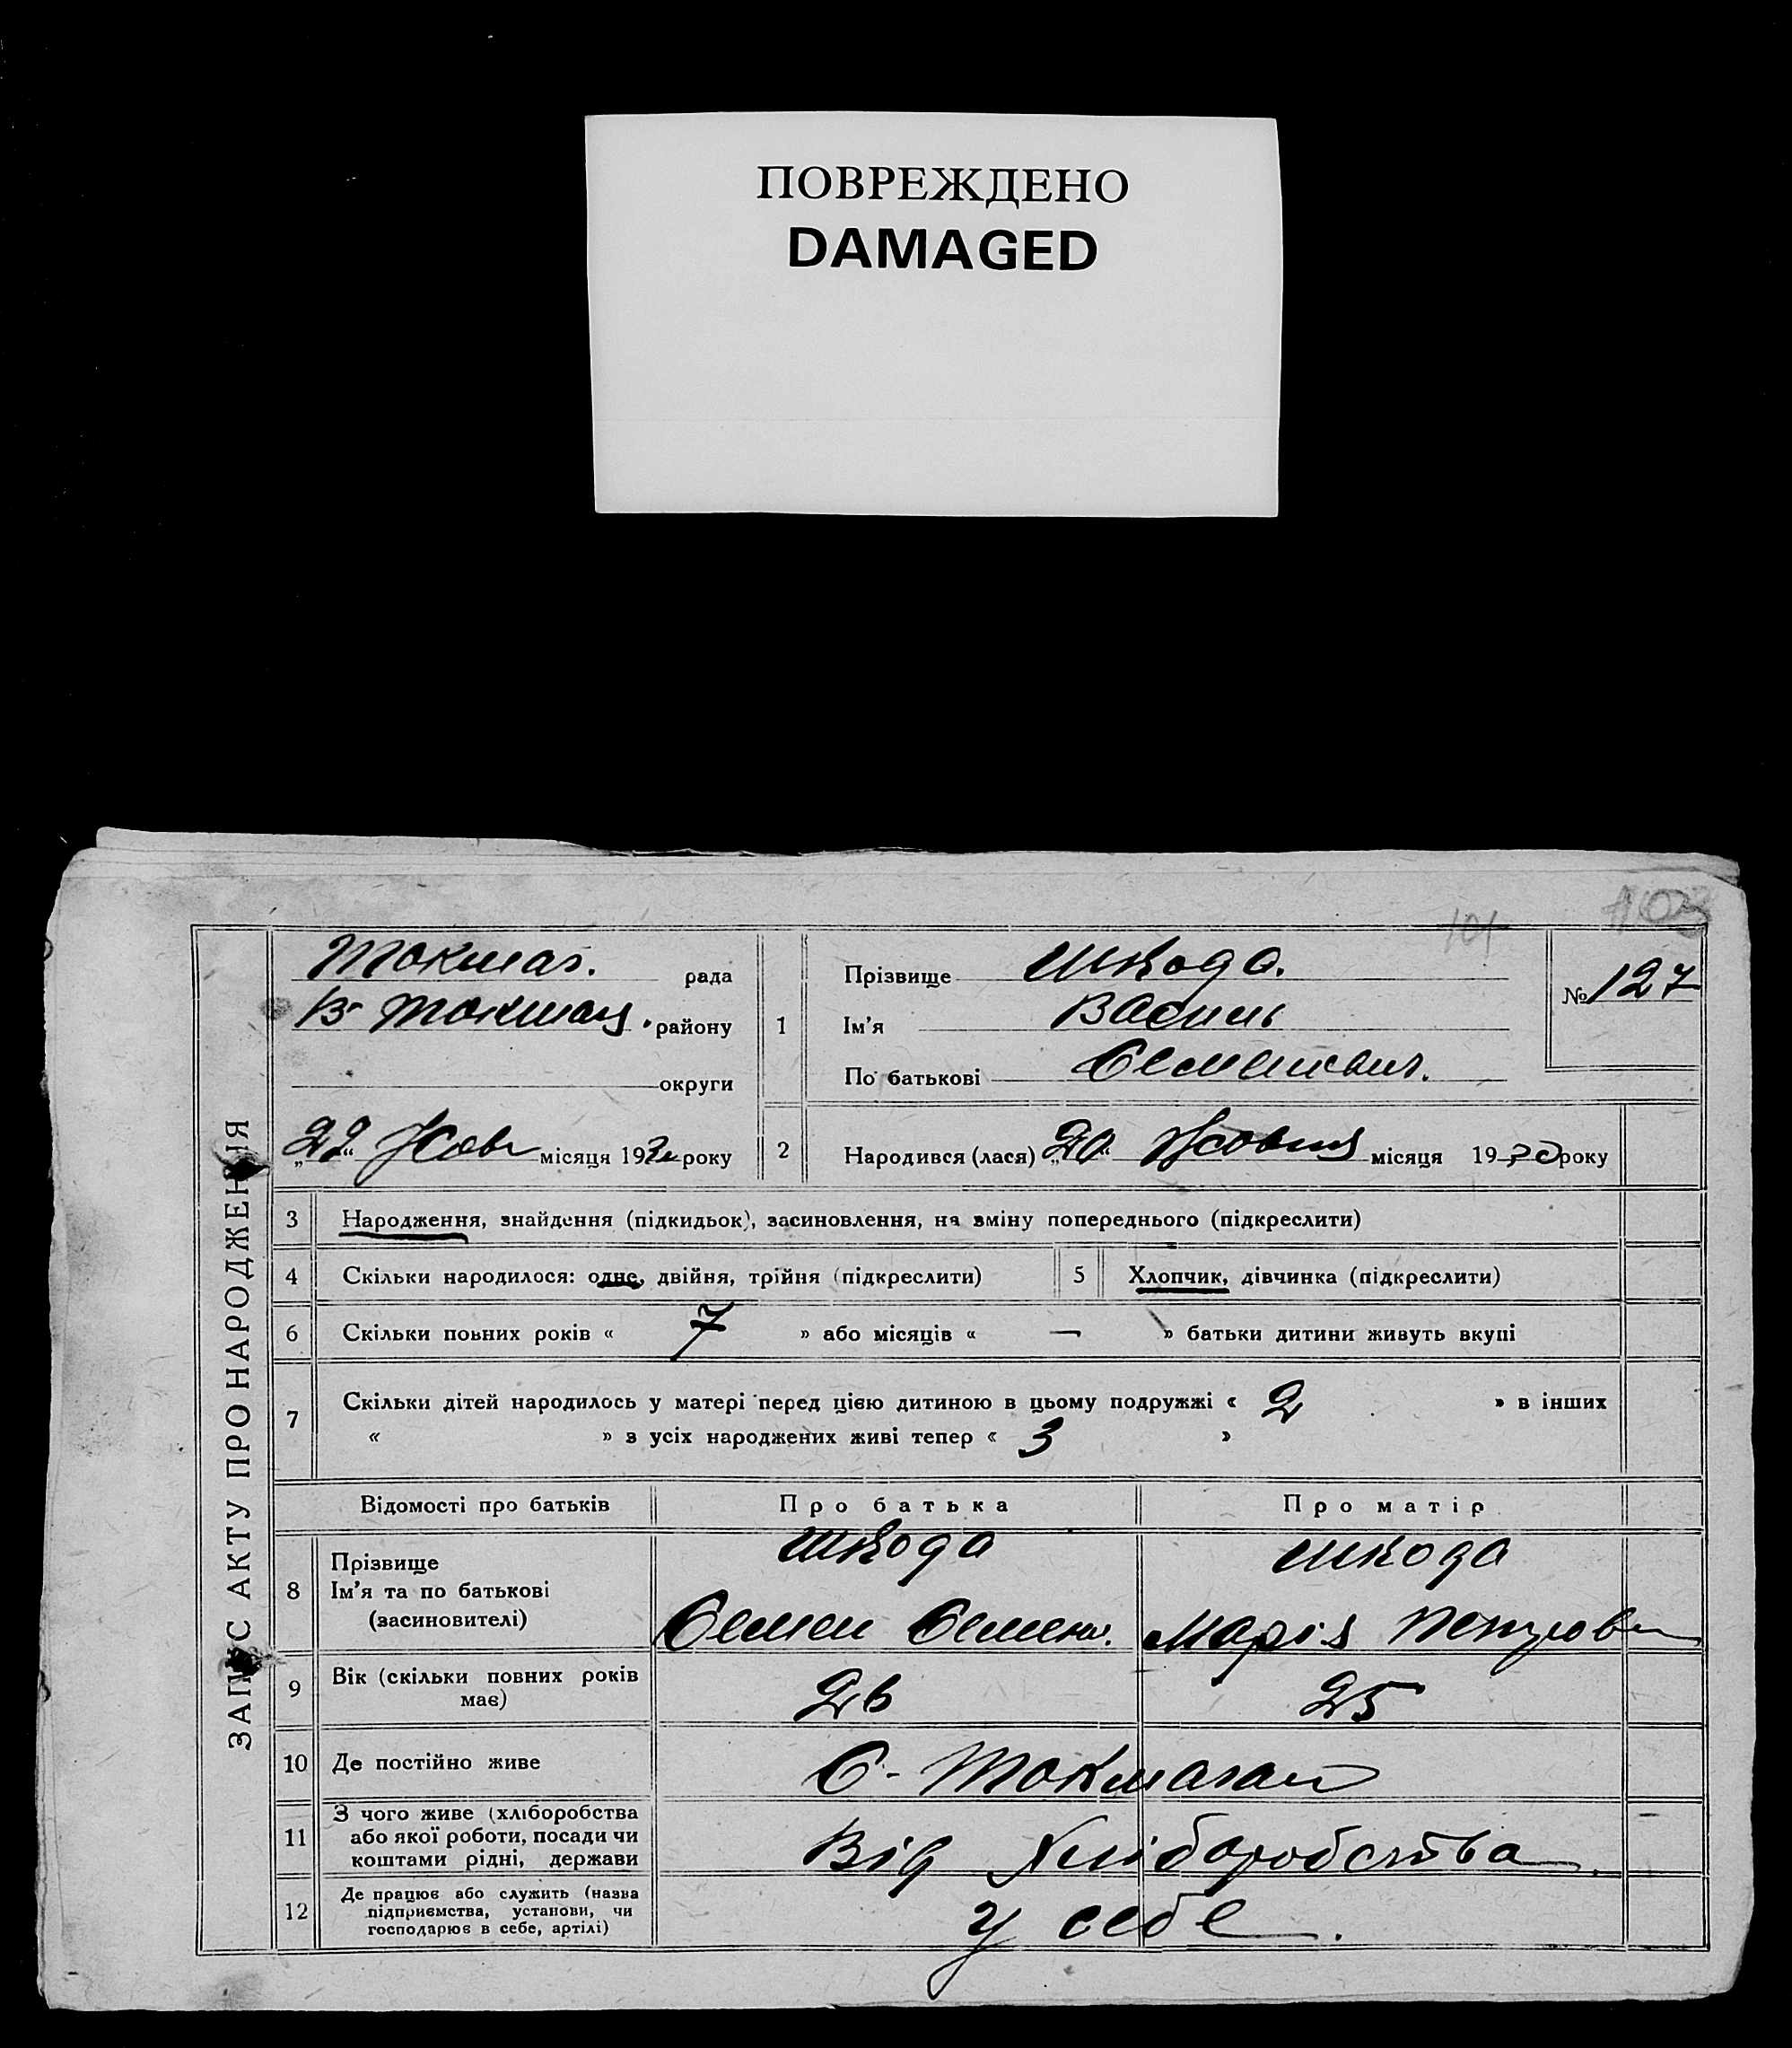 ПОВРЕЖДЕНО
DAMAGED
101
103
ЗАПИС АКТУ ПРО НАРОДЖЕННЯ
Токмаг. рада
В-Токмац. району
округи
„22“ Жовт місяця 1930 року
1
Прізвище Шкода.
Ім'я Василь
По батькові Семенович.
№ 127
2
Народився (лася) „20“ Жовтня місяця 1930 року
3 Народження, знайдення (підкидьок), засиновлення, на зміну попереднього (підкреслити)
4 Скільки народилося: одне, двійня, трійня (підкреслити) 5 Хлопчик, дівчинка (підкреслити)
6 Скільки повних років « 7 » або місяців « — » батьки дитини живуть вкупі
7 Скільки дітей народилось у матері перед цією дитиною в цьому подружжі « 2 » в інших
« » з усіх народжених живі тепер « 3 »
Відомості про батьків Про батька Про матір
8 Прізвище
Ім'я та по батькові
(засиновителі)
Шкода
Семен Семен.
Шкода
Марія Петров
9 Вік (скільки повних років
має)
26 25
10 Де постійно живе С-Токмаган
11 З чого живе (хліборобства
або якої роботи, посади чи
коштами рідні, держави
Від Хліборобства.
12 Де працює або служить (назва
підприємства, установи, чи
господарює в себе, артілі)
у себе.